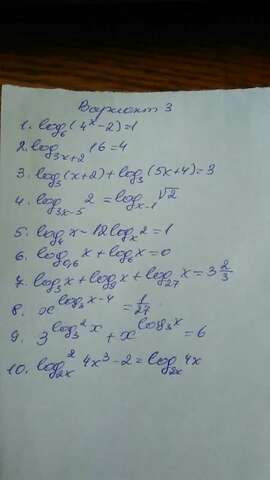 Вариант 3
1. log₆(4ˣ-2)=1
2. log₃ₓ₊₂ 16=4
3. log₃(x+2)+log₃(5x+4)=3
4. log₃ₓ₋₅ 2 = logₓ₋₁ √2
5. log₄x-12logₓ2=1
6. log₀,₆x+log₆x=0
7. log₃x+log₉x+log₂₇x=3 2/3
8. x^(log₃x-4) = 1/27
9. 3^(log₃²x) + x^(log₃x) = 6
10. log²₂ₓ 4x³-2=log₂ₓ 4x